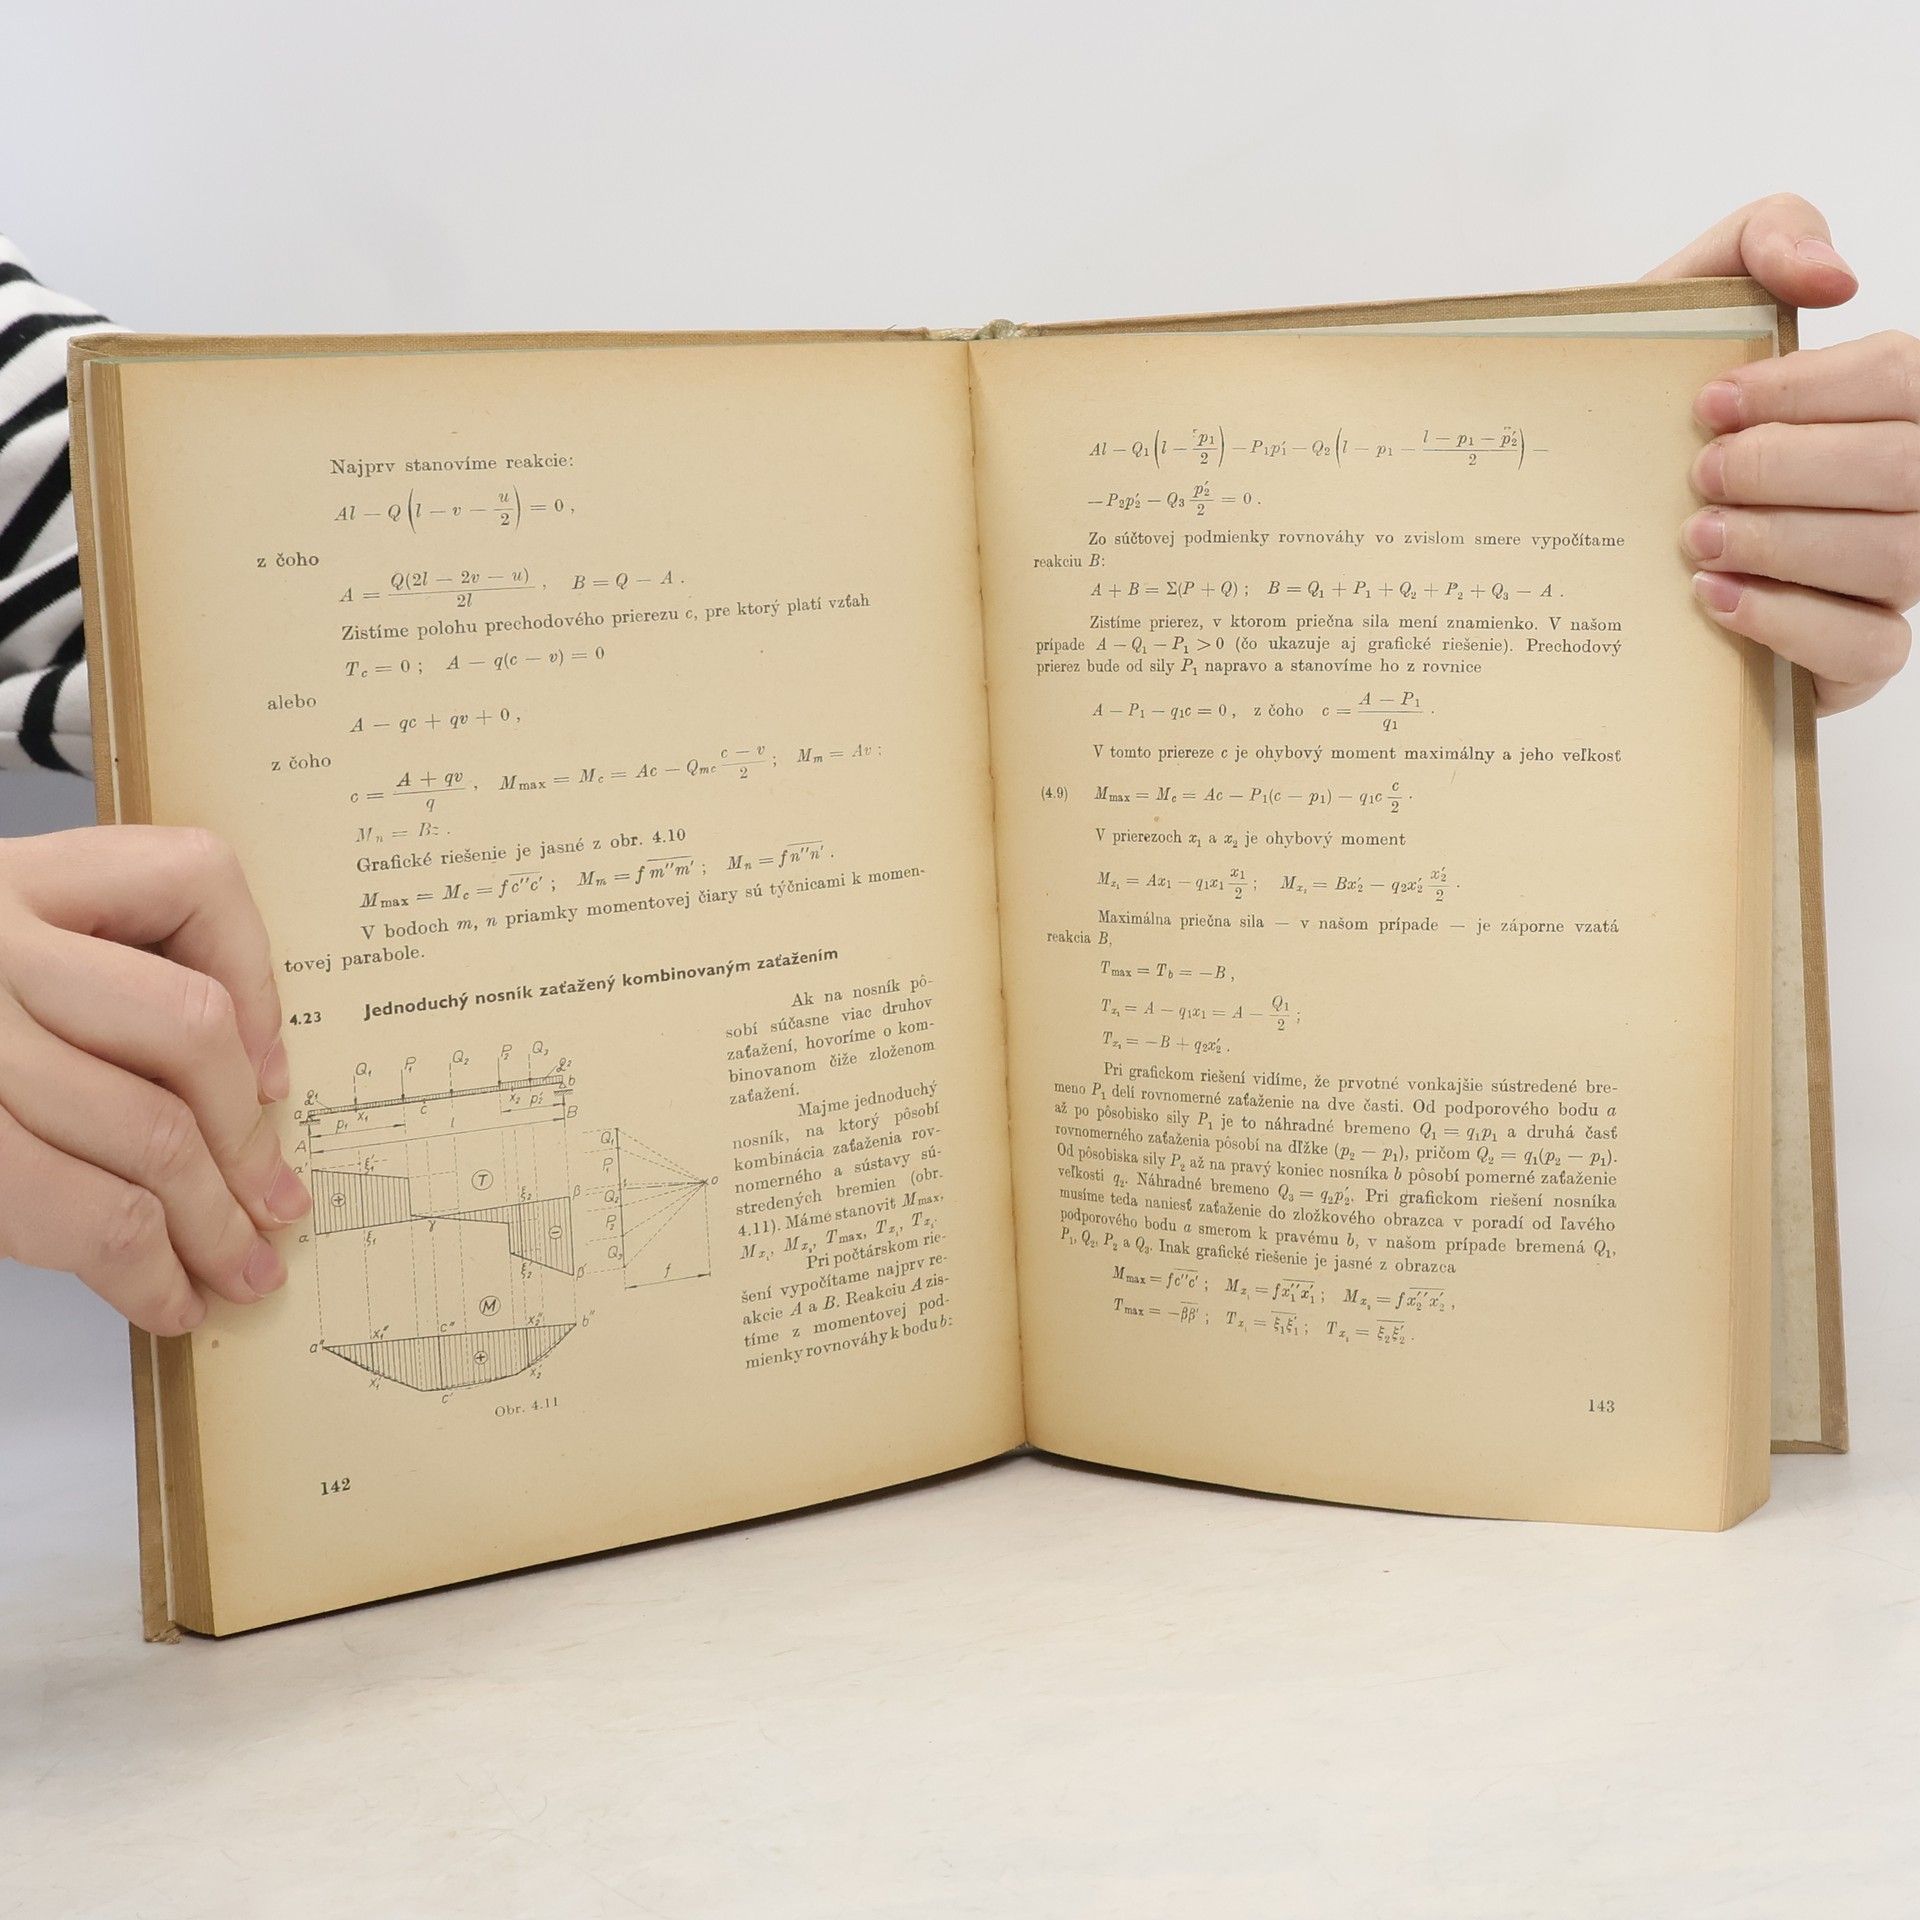 Najprv stanovíme reakcie:
Al − Q (l − v − u/2) = 0 ,
z čoho
A = Q(2l − 2v − u)/2l ,   B = Q − A .
Zistíme polohu prechodového prierezu c, pre ktorý platí vzťah
T_c = 0 ;   A − q(c − v) = 0
alebo
A − qc + qv + 0 ,
z čoho
c = A + qv/q ,   M_max = M_c = Ac − Q_mc c − v/2 ;   M_m = Av ;
M_n = Bz .
Grafické riešenie je jasné z obr. 4.10
M_max = M_c = f c″c′ ;   M_m = f m″m′ ;   M_n = f n″n′ .
V bodoch m, n priamky momentovej čiary sú týčnicami k momen-
tovej parabole.
4.23 Jednoduchý nosník zaťažený kombinovaným zaťažením
Ak na nosník pô-
sobí súčasne viac druhov
zaťažení, hovoríme o kom-
binovanom čiže zloženom
zaťažení.
Majme jednoduchý
nosník, na ktorý pôsobí
kombinácia zaťaženia rov-
nomerného a sústavy sú-
stredených bremien (obr.
4.11). Máme stanoviť M_max,
M_x₁, M_x₂, T_max, T_x₁, T_x₂.
Pri počtárskom rie-
šení vypočítame najprv re-
akcie A a B. Reakciu A zis-
tíme z momentovej pod-
mienky rovnováhy k bodu b:
Q₁ P₁ Q₂ P₂ Q₃
q₁ q₂
a x₁ c x₂ p₂′ b
p₁ l B
A
α′ ξ₁′ T ξ₂ β
+ γ −
α ξ₁ ξ₂′ β′
Q₁
P₁
Q₂
P₂
Q₃
o
f
M
a″ x₁″ c″ x₂″ b″
+
x₁′ c′ x₂′
Obr. 4.11
142
Al − Q₁ (l − p₁/2) − P₁p₁′ − Q₂ (l − p₁ − l − p₁ − p₂′/2) −
− P₂p₂′ − Q₃ p₂′/2 = 0 .
Zo súčtovej podmienky rovnováhy vo zvislom smere vypočítame
reakciu B:
A + B = Σ(P + Q) ;   B = Q₁ + P₁ + Q₂ + P₂ + Q₃ − A .
Zistíme prierez, v ktorom priečna sila mení znamienko. V našom
prípade A − Q₁ − P₁ > 0 (čo ukazuje aj grafické riešenie). Prechodový
prierez bude od sily P₁ napravo a stanovíme ho z rovnice
A − P₁ − q₁c = 0 ,   z čoho   c = A − P₁/q₁ .
V tomto priereze c je ohybový moment maximálny a jeho veľkosť
(4.9) M_max = M_c = Ac − P₁(c − p₁) − q₁c c/2 .
V prierezoch x₁ a x₂ je ohybový moment
M_x₁ = Ax₁ − q₁x₁ x₁/2 ;   M_x₂ = Bx₂′ − q₂x₂′ x₂′/2 .
Maximálna priečna sila — v našom prípade — je záporne vzatá
reakcia B,
T_max = T_b = −B ,
T_x₁ = A − q₁x₁ = A − Q₁/2 ;
T_x₂ = −B + q₂x₂′ .
Pri grafickom riešení vidíme, že prvotné vonkajšie sústredené bre-
meno P₁ delí rovnomerné zaťaženie na dve časti. Od podporového bodu a
až po pôsobisko sily P₁ je to náhradné bremeno Q₁ = q₁p₁ a druhá časť
rovnomerného zaťaženia pôsobí na dĺžke (p₂ − p₁), pričom Q₂ = q₁(p₂ − p₁).
Od pôsobiska sily P₂ až na pravý koniec nosníka b pôsobí pomerné zaťaženie
veľkosti q₂. Náhradné bremeno Q₃ = q₂p₂′. Pri grafickom riešení nosníka
musíme teda naniesť zaťaženie do zložkového obrazca v poradí od ľavého
podporového bodu a smerom k pravému b, v našom prípade bremená Q₁,
P₁, Q₂, P₂ a Q₃. Inak grafické riešenie je jasné z obrazca
M_max = f c″c′ ;   M_x₁ = f x₁″x₁′ ;   M_x₂ = f x₂″x₂′ ,
T_max = −ββ′ ;   T_x₁ = ξ₁ξ₁′ ;   T_x₂ = ξ₂ξ₂′ .
143